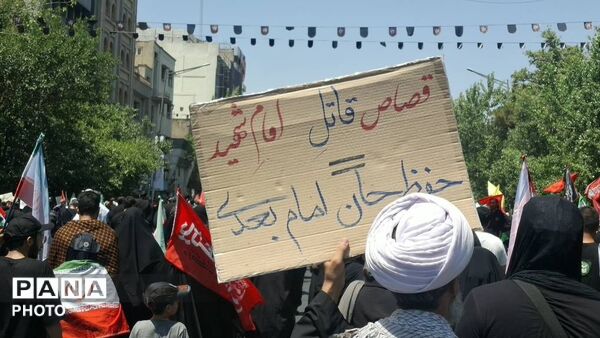 قصاص قاتل امام شهید
=
حفظ جان امام بعدی
PANA
PHOTO